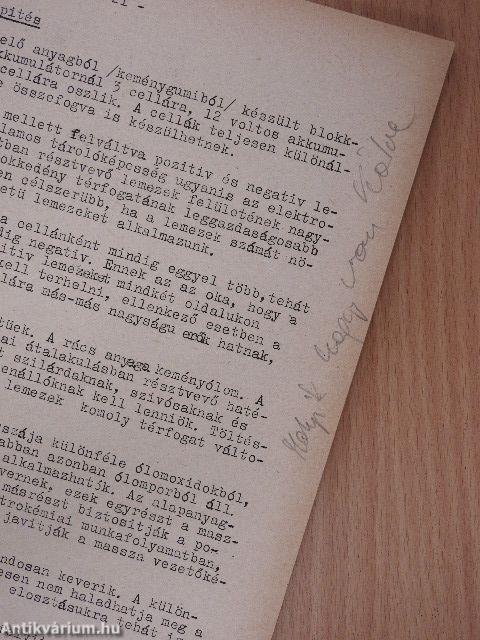 11 -
pités
elő anyagból /keménygumiból/ készült blokk-
kkumulátornál 3 cellára, 12 voltos akkumu-
cellára oszlik. A cellák teljesen különál-
e összefogva is készülhetnek.
mellett felváltva pozitiv és negativ le-
lamos tárolóképesség ugyanis az elektro-
tban résztvevő lemezek felületének nagy-
okkedény térfogatának leggazdaságosabb
en célszerübb, ha a lemezek számát nö-
etü lemezeket alkalmazunk.
a cellánként mindig eggyel több, tehát
dig negativ. Ennek az az oka, hogy a
itiv lemezeket mindkét oldalukon
kell terhelni, ellenkező esetben a
lára más-más nagyságu erők hatnak,
tüek. A rács anyaga keményólom. A
ai átalakulásban résztvevő haté-
t szilárdaknak, szivósaknak és
enállóknak kell lenniök. Töltés-
lemezek komoly térfogatválto-
szája különféle ólomoxidokból,
abban azonban ólomporból áll.
alkalmazhatják. Az alapanyag-
vernek, ezek egyrészt a masz-
másrészt biztositják a po-
trokémiai munkafolyamatban,
javitják a massza vezetőké-
ndosan keverik. A külön-
esen nem haladhatja meg a
elosztásukra tehát i
van
Antikvárium.hu